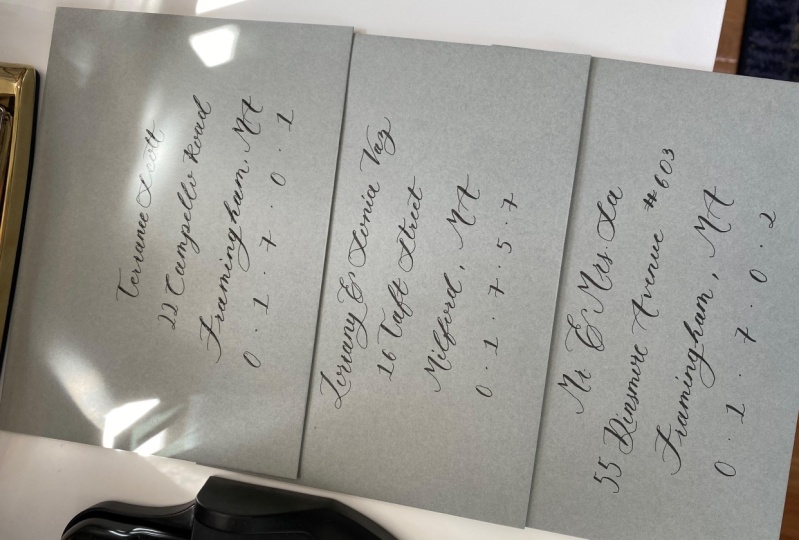 Terrance Scott
22 Campello Road
Framingham, MA
0 · 1 · 7 · 0 · 1
Lorrany & Sonia Vaz
16 Taft Street
Milford, MA
0 · 1 · 7 · 5 · 7
Mr. & Mrs. La
55 Dinsmore Avenue #603
Framingham, MA
0 · 1 · 7 · 0 · 2